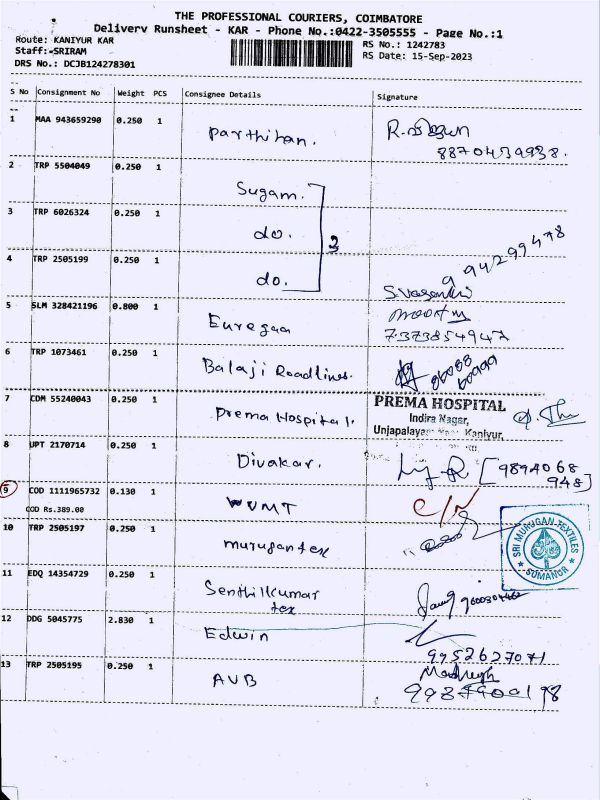 THE PROFESSIONAL COURIERS, COIMBATORE
Delivery Runsheet - KAR - Phone No.:0422-3505555 - Page No.:1
Route: KANIYUR KAR
RS No.: 1242783
Staff:-SRIRAM
RS Date: 15-Sep-2023
DRS No.: DCJB124278301
S No Consignment No Weight PCS Consignee Details Signature
1 MAA 943659290 0.250 1 Parthiban.
8870439938.
2 TRP 5504049 0.250 1 Sugam.
3 TRP 6026324 0.250 1 do. 3
4 TRP 2505199 0.250 1 do.
994299478
S.Vasanthi
5 SLM 328421196 0.800 1 Euregaa
moorthy
7373854947
6 TRP 1073461 0.250 1 Balaji Roadlines.
7 CDM 55240043 0.250 1 Prema Hospital.
PREMA HOSPITAL
Indira Nagar,
Unjapalayam Kaniyur,
8 UPT 2170714 0.250 1 Divakar.
[9894068
948]
9 COD 1111965732 0.130 1 WVMT
COD Rs.389.00
10 TRP 2505197 0.250 1 murugan tex
SRI MURUGAN TEXTILES
SUMANUR
11 EDQ 14354729 0.250 1 Senthilkumar
tex
12 DDG 5045775 2.830 1 Edwin
9952627071
13 TRP 2505195 0.250 1 AVB